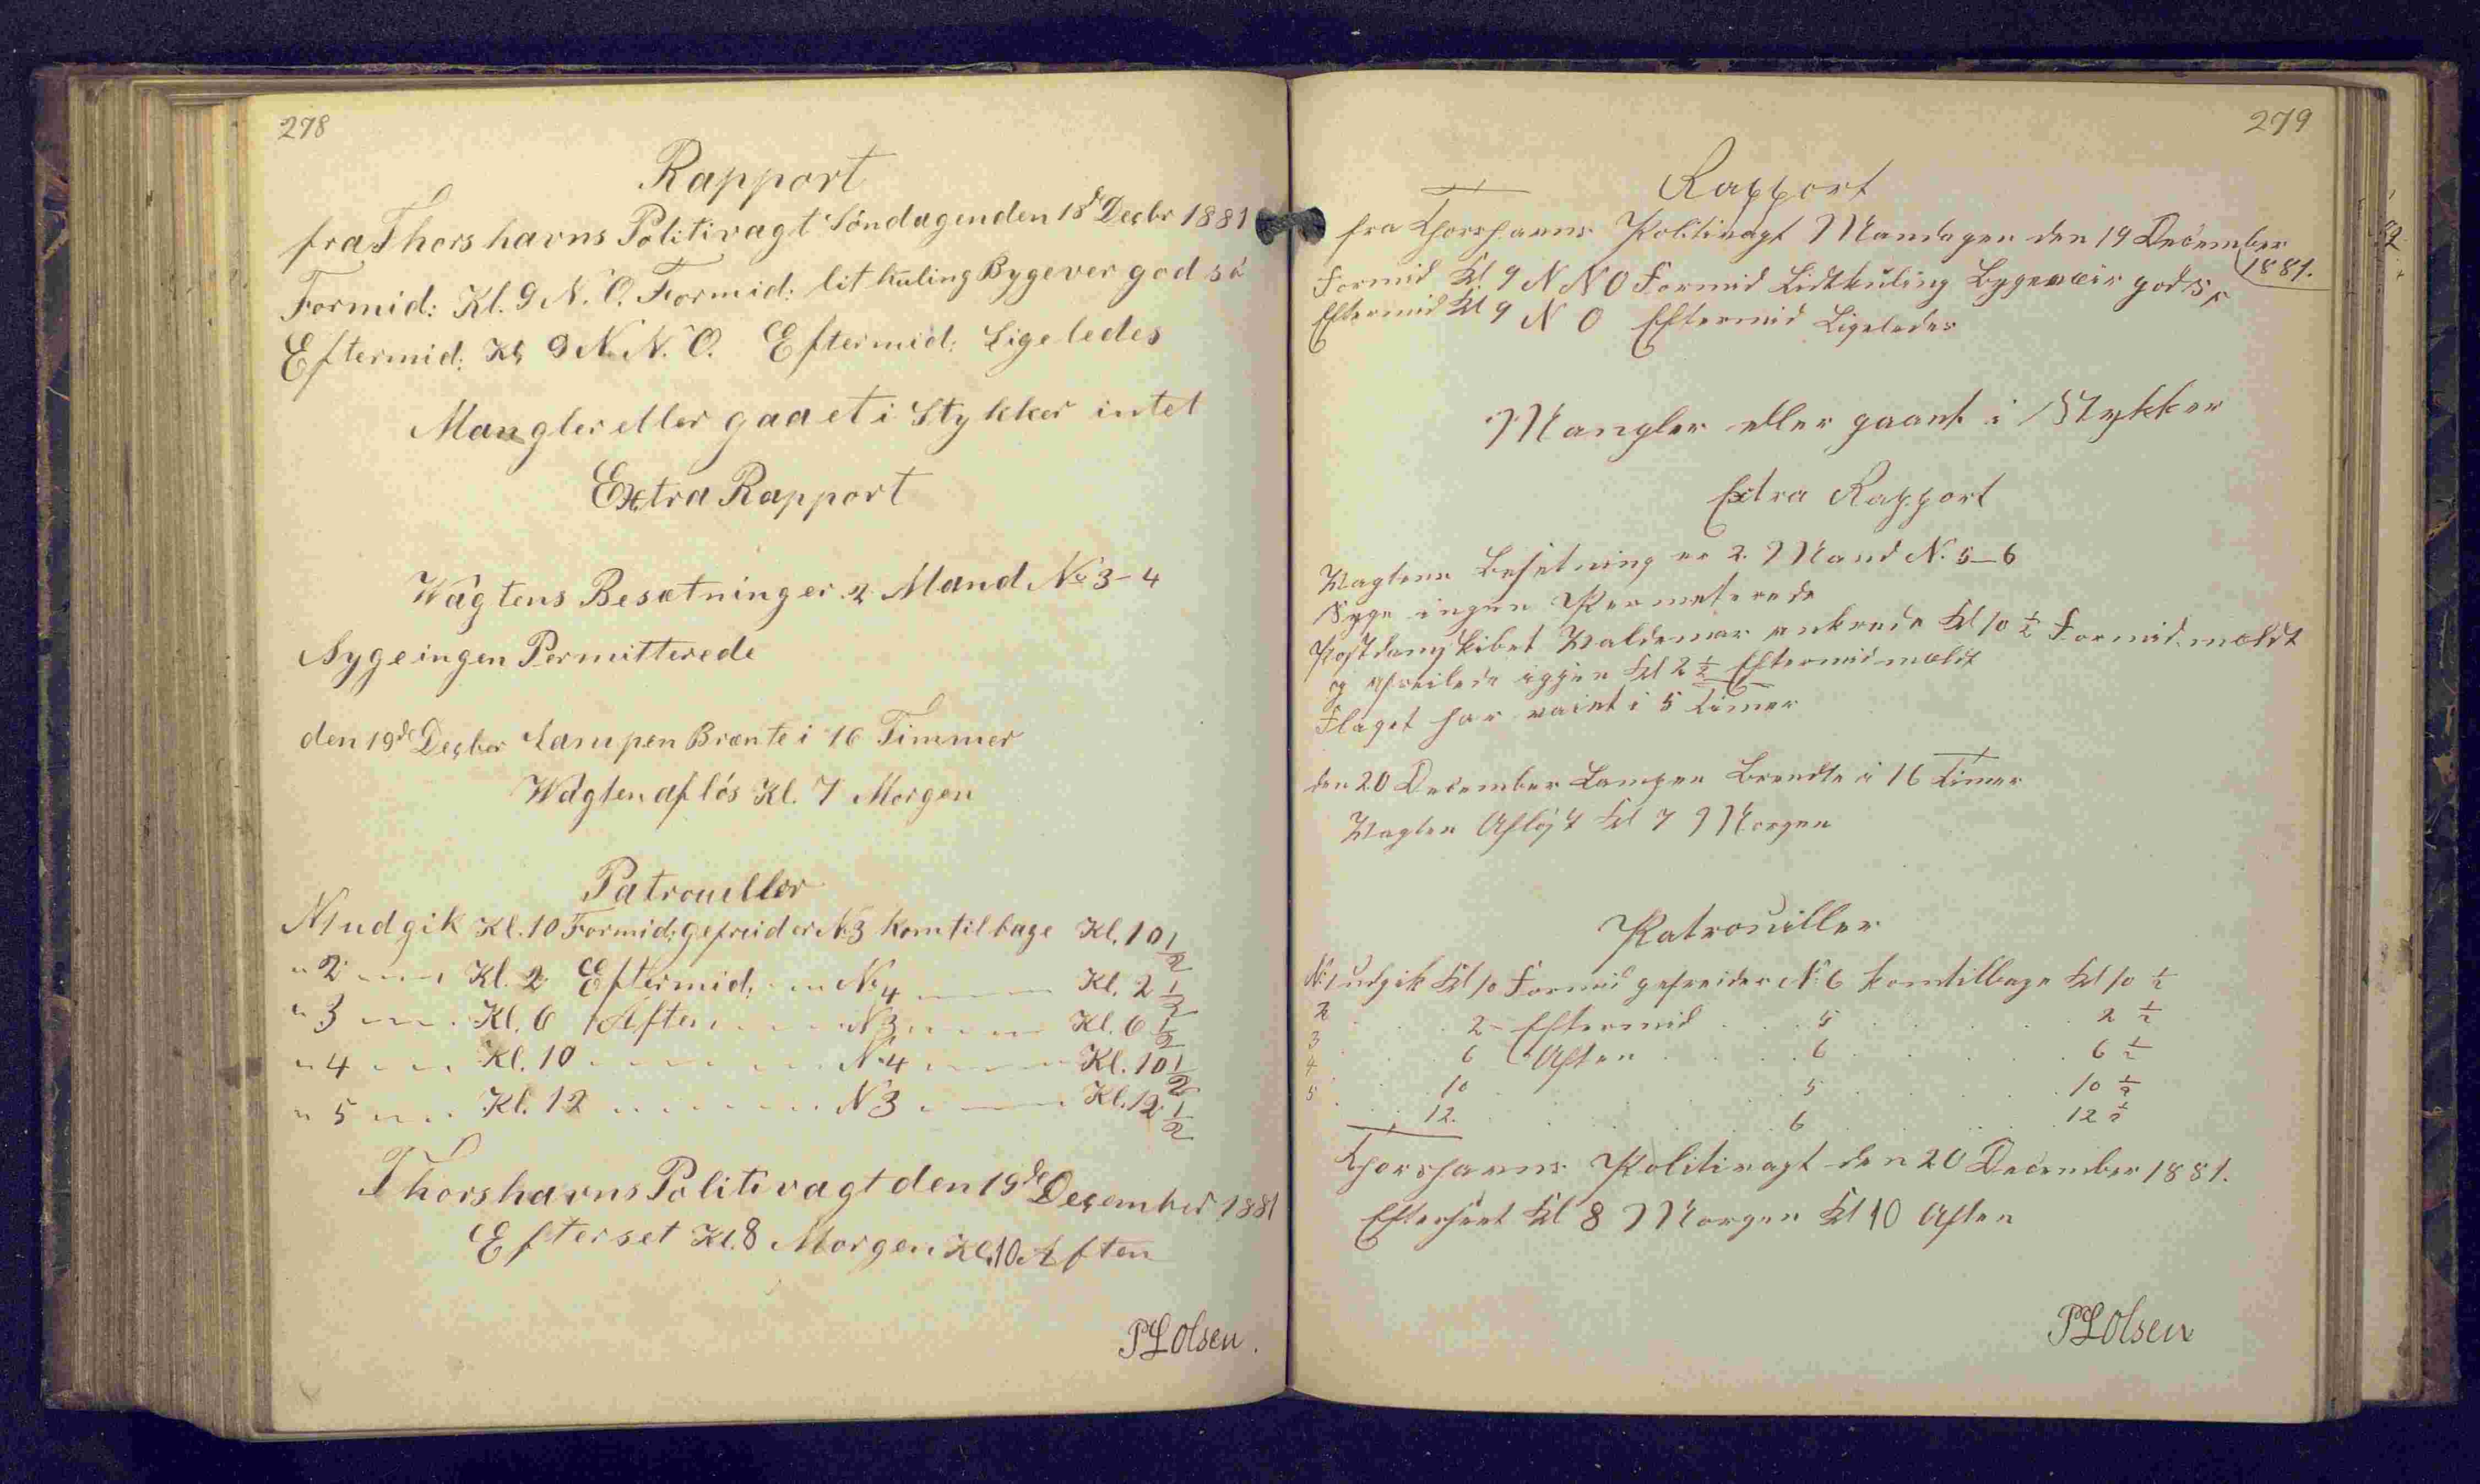 278
Rapport
fra Thorshavns Politivagt Söndagen den 18de Decbr 1881
Formid: Kl. 9 N. O. Formid: lit kuling Bygever god sö
Eftermid: Kl. 9 N. N. O. Eftermid: Lige ledes
Mangler eller gaaet i Stykker intet
Extra Rapport
Wagtens Besætning er 2 Mand No 3-4
Syge ingen Permitterede
den 19de Decber Lampen Brænte i 16 Timmer
Wagten aflös Kl. 7 Morgen
Patrouller
N1 udgik Kl. 10 Formid: gefreider N3 kom tilbage Kl. 10 1/2
" 2 Kl. 2 Eftermid: No 4 Kl. 2 1/2
" 3 Kl. 6 Aften N3 Kl. 6 1/2
" 4 Kl. 10 N4 Kl. 10 1/2
" 5 Kl. 12 N3 Kl. 12 1/2
Thorshavns Politivagt den 19de December 1881
Efterset Kl. 8 Morgen Kl. 10 Aften
PLOlsen.
279
Rapport
fra Thorshavns Politivagt Mandagen den 19 December
1881.
Formid Kl 9 N N O Formid Lidtkuling Bygeveir god
Eftermid Kl 9 N O Eftermid Ligeledes
Mangler eller gaaet i Stykker
Extra Rapport
Vagtens Besetning er 2. Mand N. 5-6
Syge ingen Permeterede
Postdampskibet Waldemar ankrede Kl 10 1/2 Formid. mældt
og afseilede iggjen Kl 2 1/2 Eftermid mældt
Flaget har vaiet i 5 Timer
den 20 December Lampen Brendte i 16 Timer
Vagten Afløst Kl 7 Morgen
Patrouiller
No 1 udgik Kl 10 Formid gefreider No 6 komtilbage Kl 10 1/2
2 2 Eftermid 5 2 1/2
3 6 Aften 6 6 1/2
4 10 5 10 1/2
5 12. 6 12 1/2
Thorshavns Politivagt den 20 December 1881.
Efterseet Kl 8 Morgen Kl 10 Aften
PLOlsen